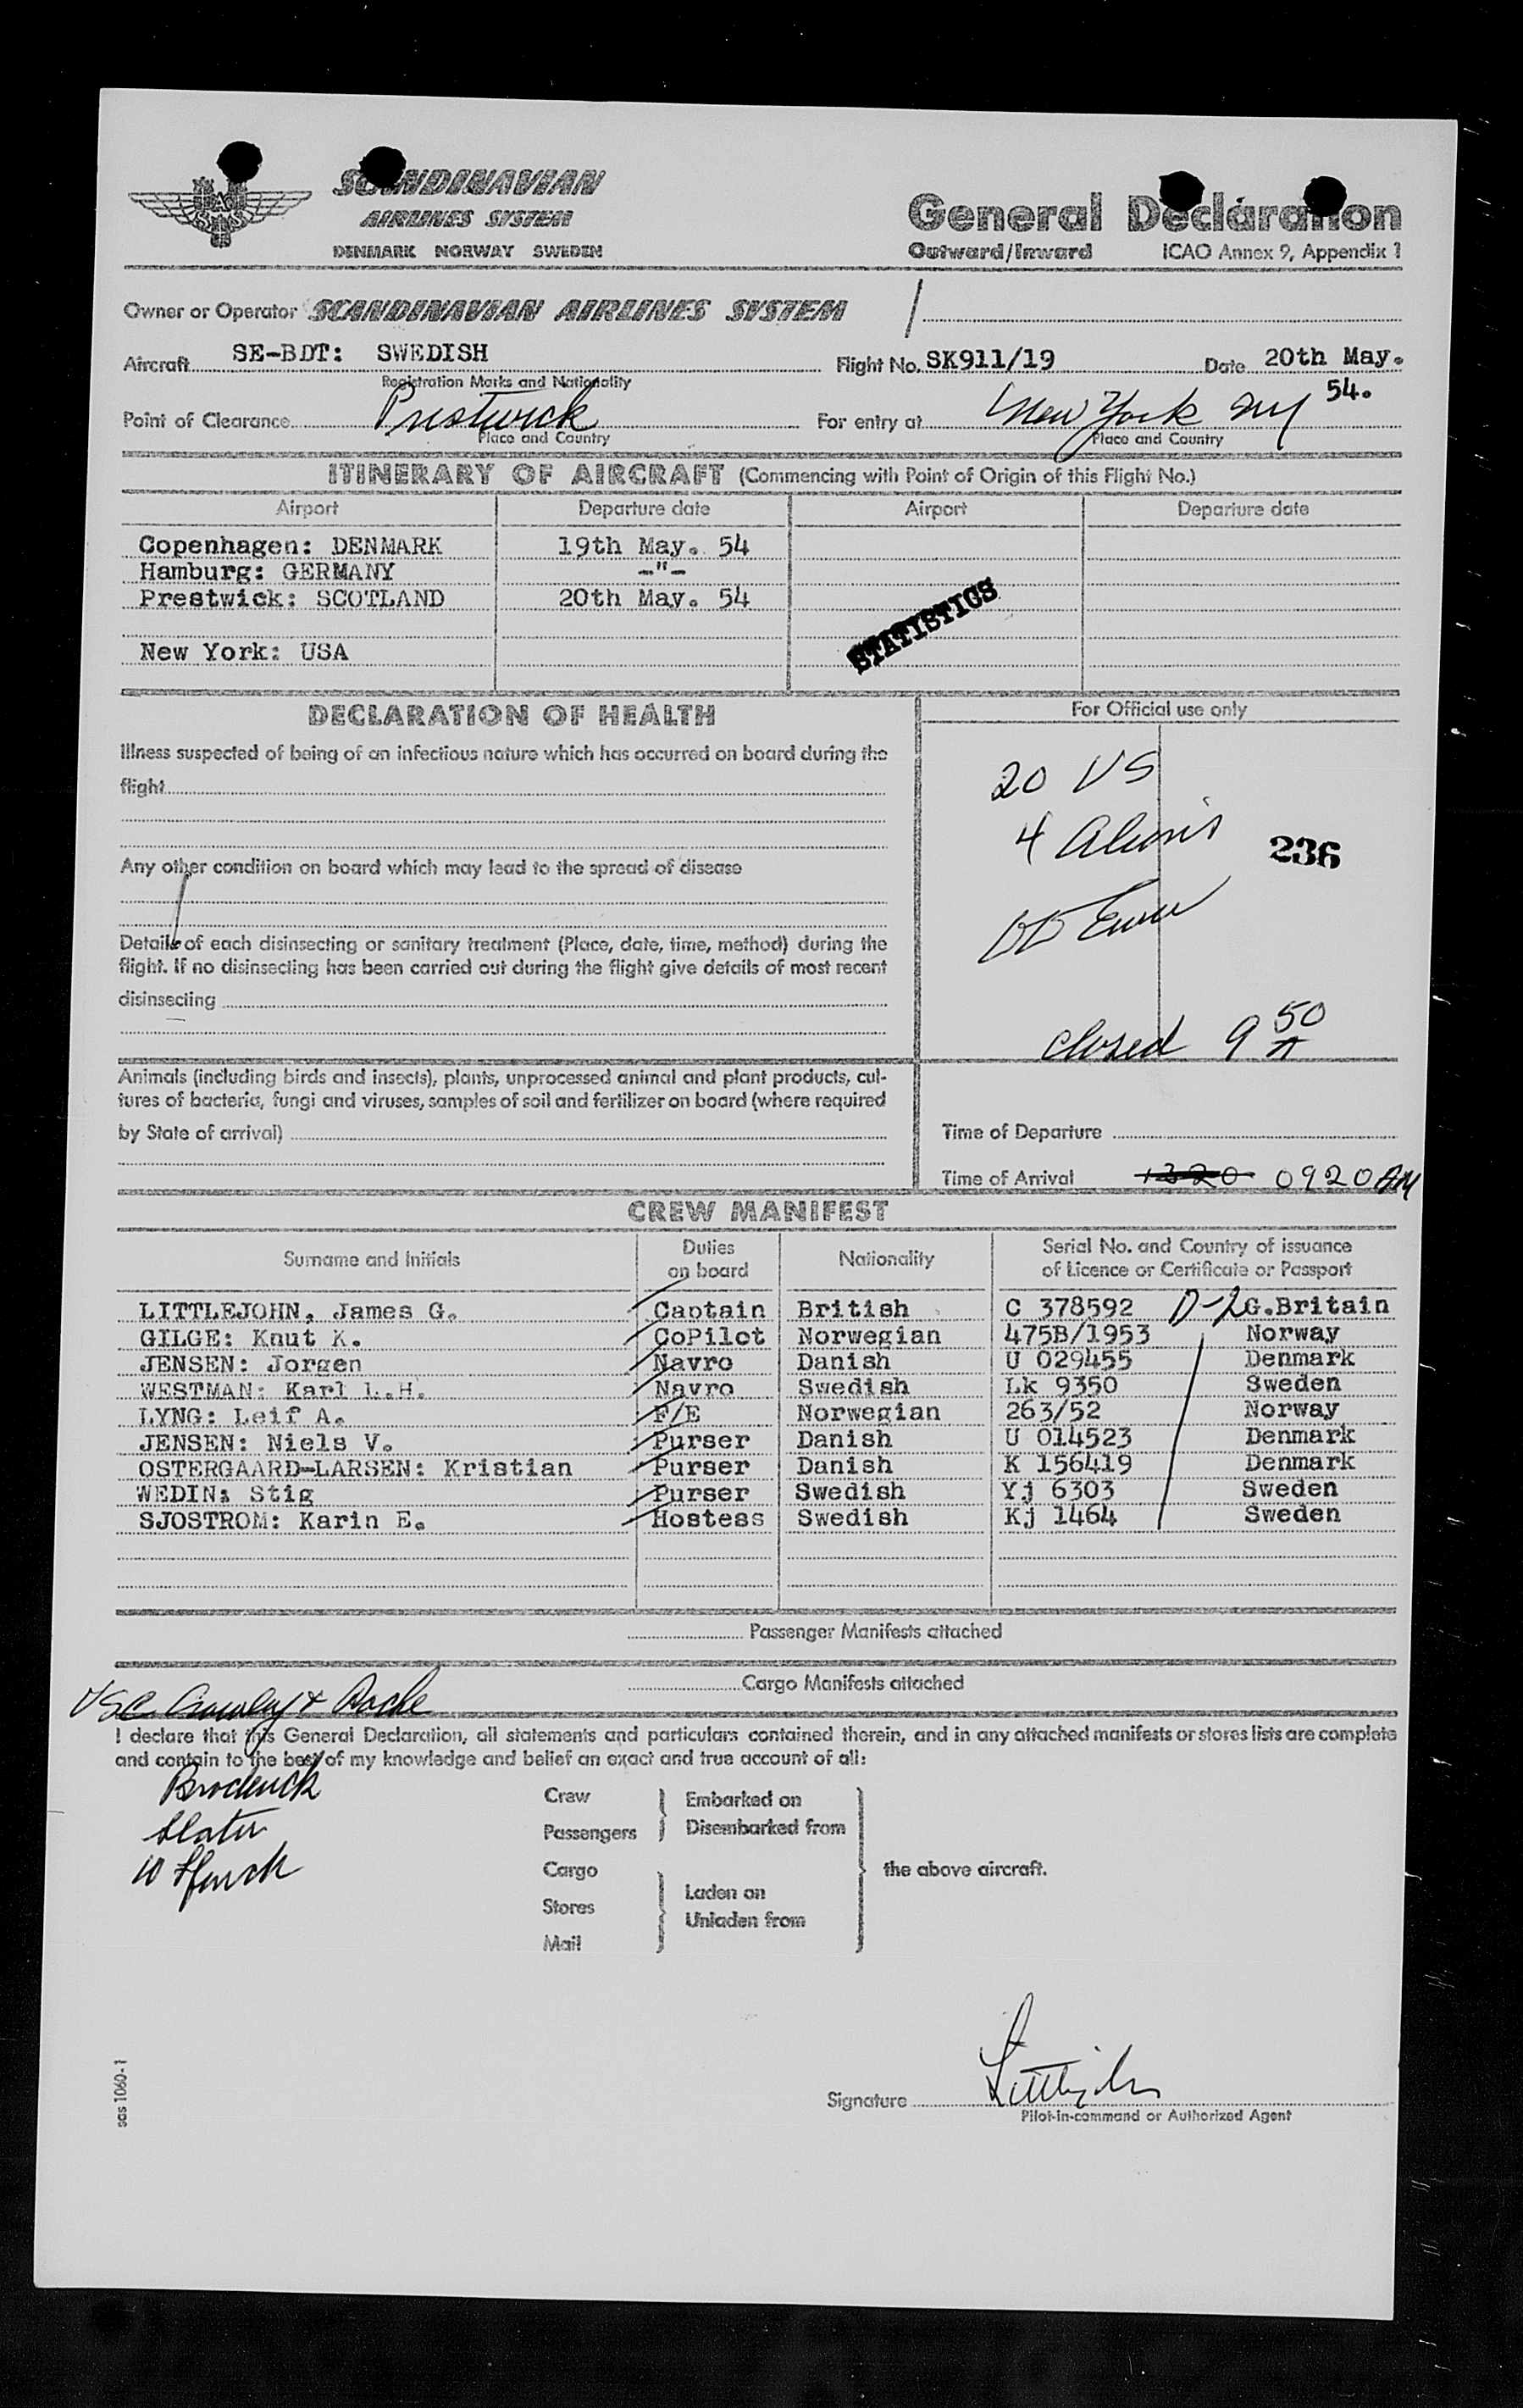 SCANDINAVIAN
AIRLINES SYSTEM
DENMARK NORWAY SWEDEN
SAS
General Declaration
Outward/Inward ICAO Annex 9, Appendix 1
Owner or Operator SCANDINAVIAN AIRLINES SYSTEM
Aircraft SE-BDT: SWEDISH Flight No. SK911/19 Date 20th May. 54.
Registration Marks and Nationality
Point of Clearance Prestwick For entry at New York NY
Place and Country Place and Country
ITINERARY OF AIRCRAFT (Commencing with Point of Origin of this Flight No.)
Airport Departure date Airport Departure date
Copenhagen: DENMARK 19th May. 54
Hamburg: GERMANY -"-
Prestwick: SCOTLAND 20th May. 54
STATISTICS
New York: USA
DECLARATION OF HEALTH
Illness suspected of being of an infectious nature which has occurred on board during the
flight
Any other condition on board which may lead to the spread of disease
Details of each disinsecting or sanitary treatment (Place, date, time, method) during the
flight. If no disinsecting has been carried out during the flight give details of most recent
disinsecting
Animals (including birds and insects), plants, unprocessed animal and plant products, cul-
tures of bacteria, fungi and viruses, samples of soil and fertilizer on board (where required
by State of arrival)
For Official use only
20 US
4 Aliens
236
closed 9 50 A
Time of Departure
Time of Arrival 1320 0920 AM
CREW MANIFEST
Surname and Initials Duties on board Nationality Serial No. and Country of issuance of Licence or Certificate or Passport
LITTLEJOHN, James G. Captain British C 378592 D-2 G.Britain
GILGE: Knut K. CoPilot Norwegian 475B/1953 Norway
JENSEN: Jorgen Navro Danish U 029455 Denmark
WESTMAN: Karl L.H. Navro Swedish Lk 9350 Sweden
LYNG: Leif A. F/E Norwegian 263/52 Norway
JENSEN: Niels V. Purser Danish U 014523 Denmark
OSTERGAARD-LARSEN: Kristian Purser Danish K 156419 Denmark
WEDIN: Stig Purser Swedish Yj 6303 Sweden
SJOSTROM: Karin E. Hostess Swedish Kj 1464 Sweden
Passenger Manifests attached
Cargo Manifests attached
I declare that this General Declaration, all statements and particulars contained therein, and in any attached manifests or stores lists are complete
and contain to the best of my knowledge and belief an exact and true account of all:
Broderick
Slater
Crew
Passengers
Embarked on
Disembarked from
Cargo
Stores
Mail
Laden on
Unladen from
the above aircraft.
Signature Littlejohn
Pilot-in-command or Authorized Agent
sas 1060-1